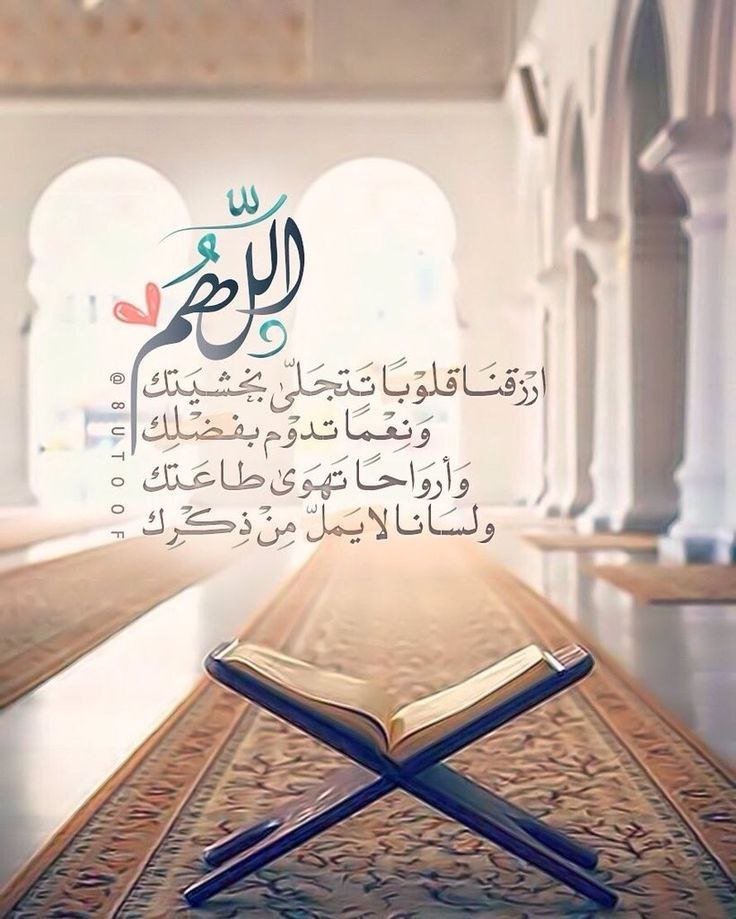 اللّهُم
ارْزقنَا قلوبًا تَتجَلّىٰ بخشيَتك
وَنِعْمًا تدوْم بفضْلِك
وَأروَاحًا تَهوَىٰ طاعَتك
ولسَانا لا يَملّ مِنْ ذِكْرِك
@8UTOOF